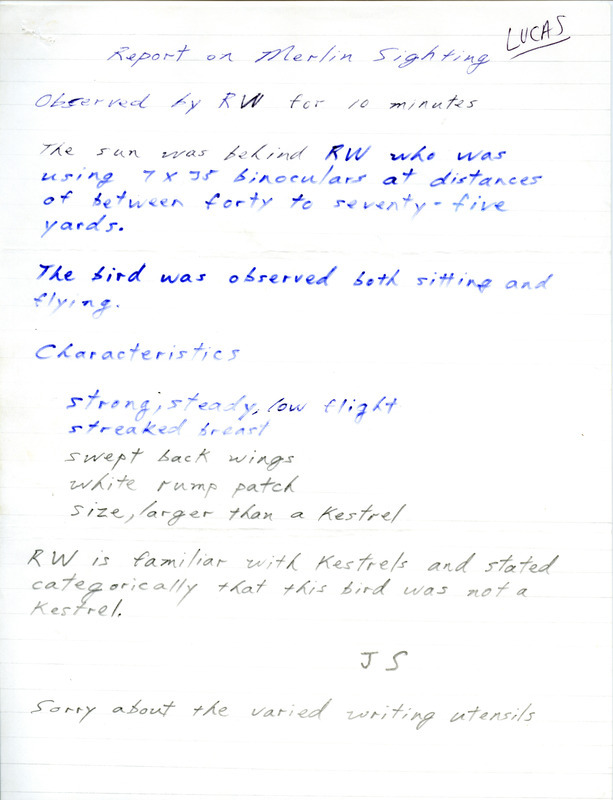 LUCAS
Report on Merlin Sighting
Observed by RW for 10 minutes
The sun was behind RW who was
using 7 x 35 binoculars at distances
of between forty to seventy-five
yards.
The bird was observed both sitting and
flying.
Characteristics
strong, steady, low flight
streaked breast
swept back wings
white rump patch
size, larger than a Kestrel
RW is familiar with Kestrels and stated
categorically that this bird was not a
Kestrel.
JS
Sorry about the varied writing utensils